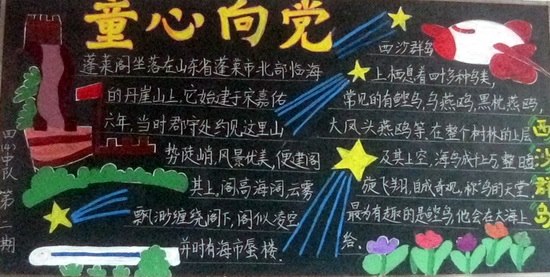 童心向党
蓬莱阁坐落在山东省蓬莱市北部临海
的丹崖山上.它始建于宋嘉佑
六年,当时郡守处约见这里山
势陡峭,风景优美,便建阁
其上,阁高海阔,云雾
飘渺缠绕阁下,阁似凌空
并时有海市蜃楼.
西沙群鸟
上栖息着四十多种鸟类,
常见的有鲣鸟,乌燕鸥,黑枕燕鸥,
大凤头燕鸥等在整个树林的上层
及其上空,海鸟成千上万 整晒
旋飞翔,自成奇观,称鸟的天堂,
最为有趣的是鲣鸟他会在大海上
给.
西沙群岛
四(4)中队 第二期